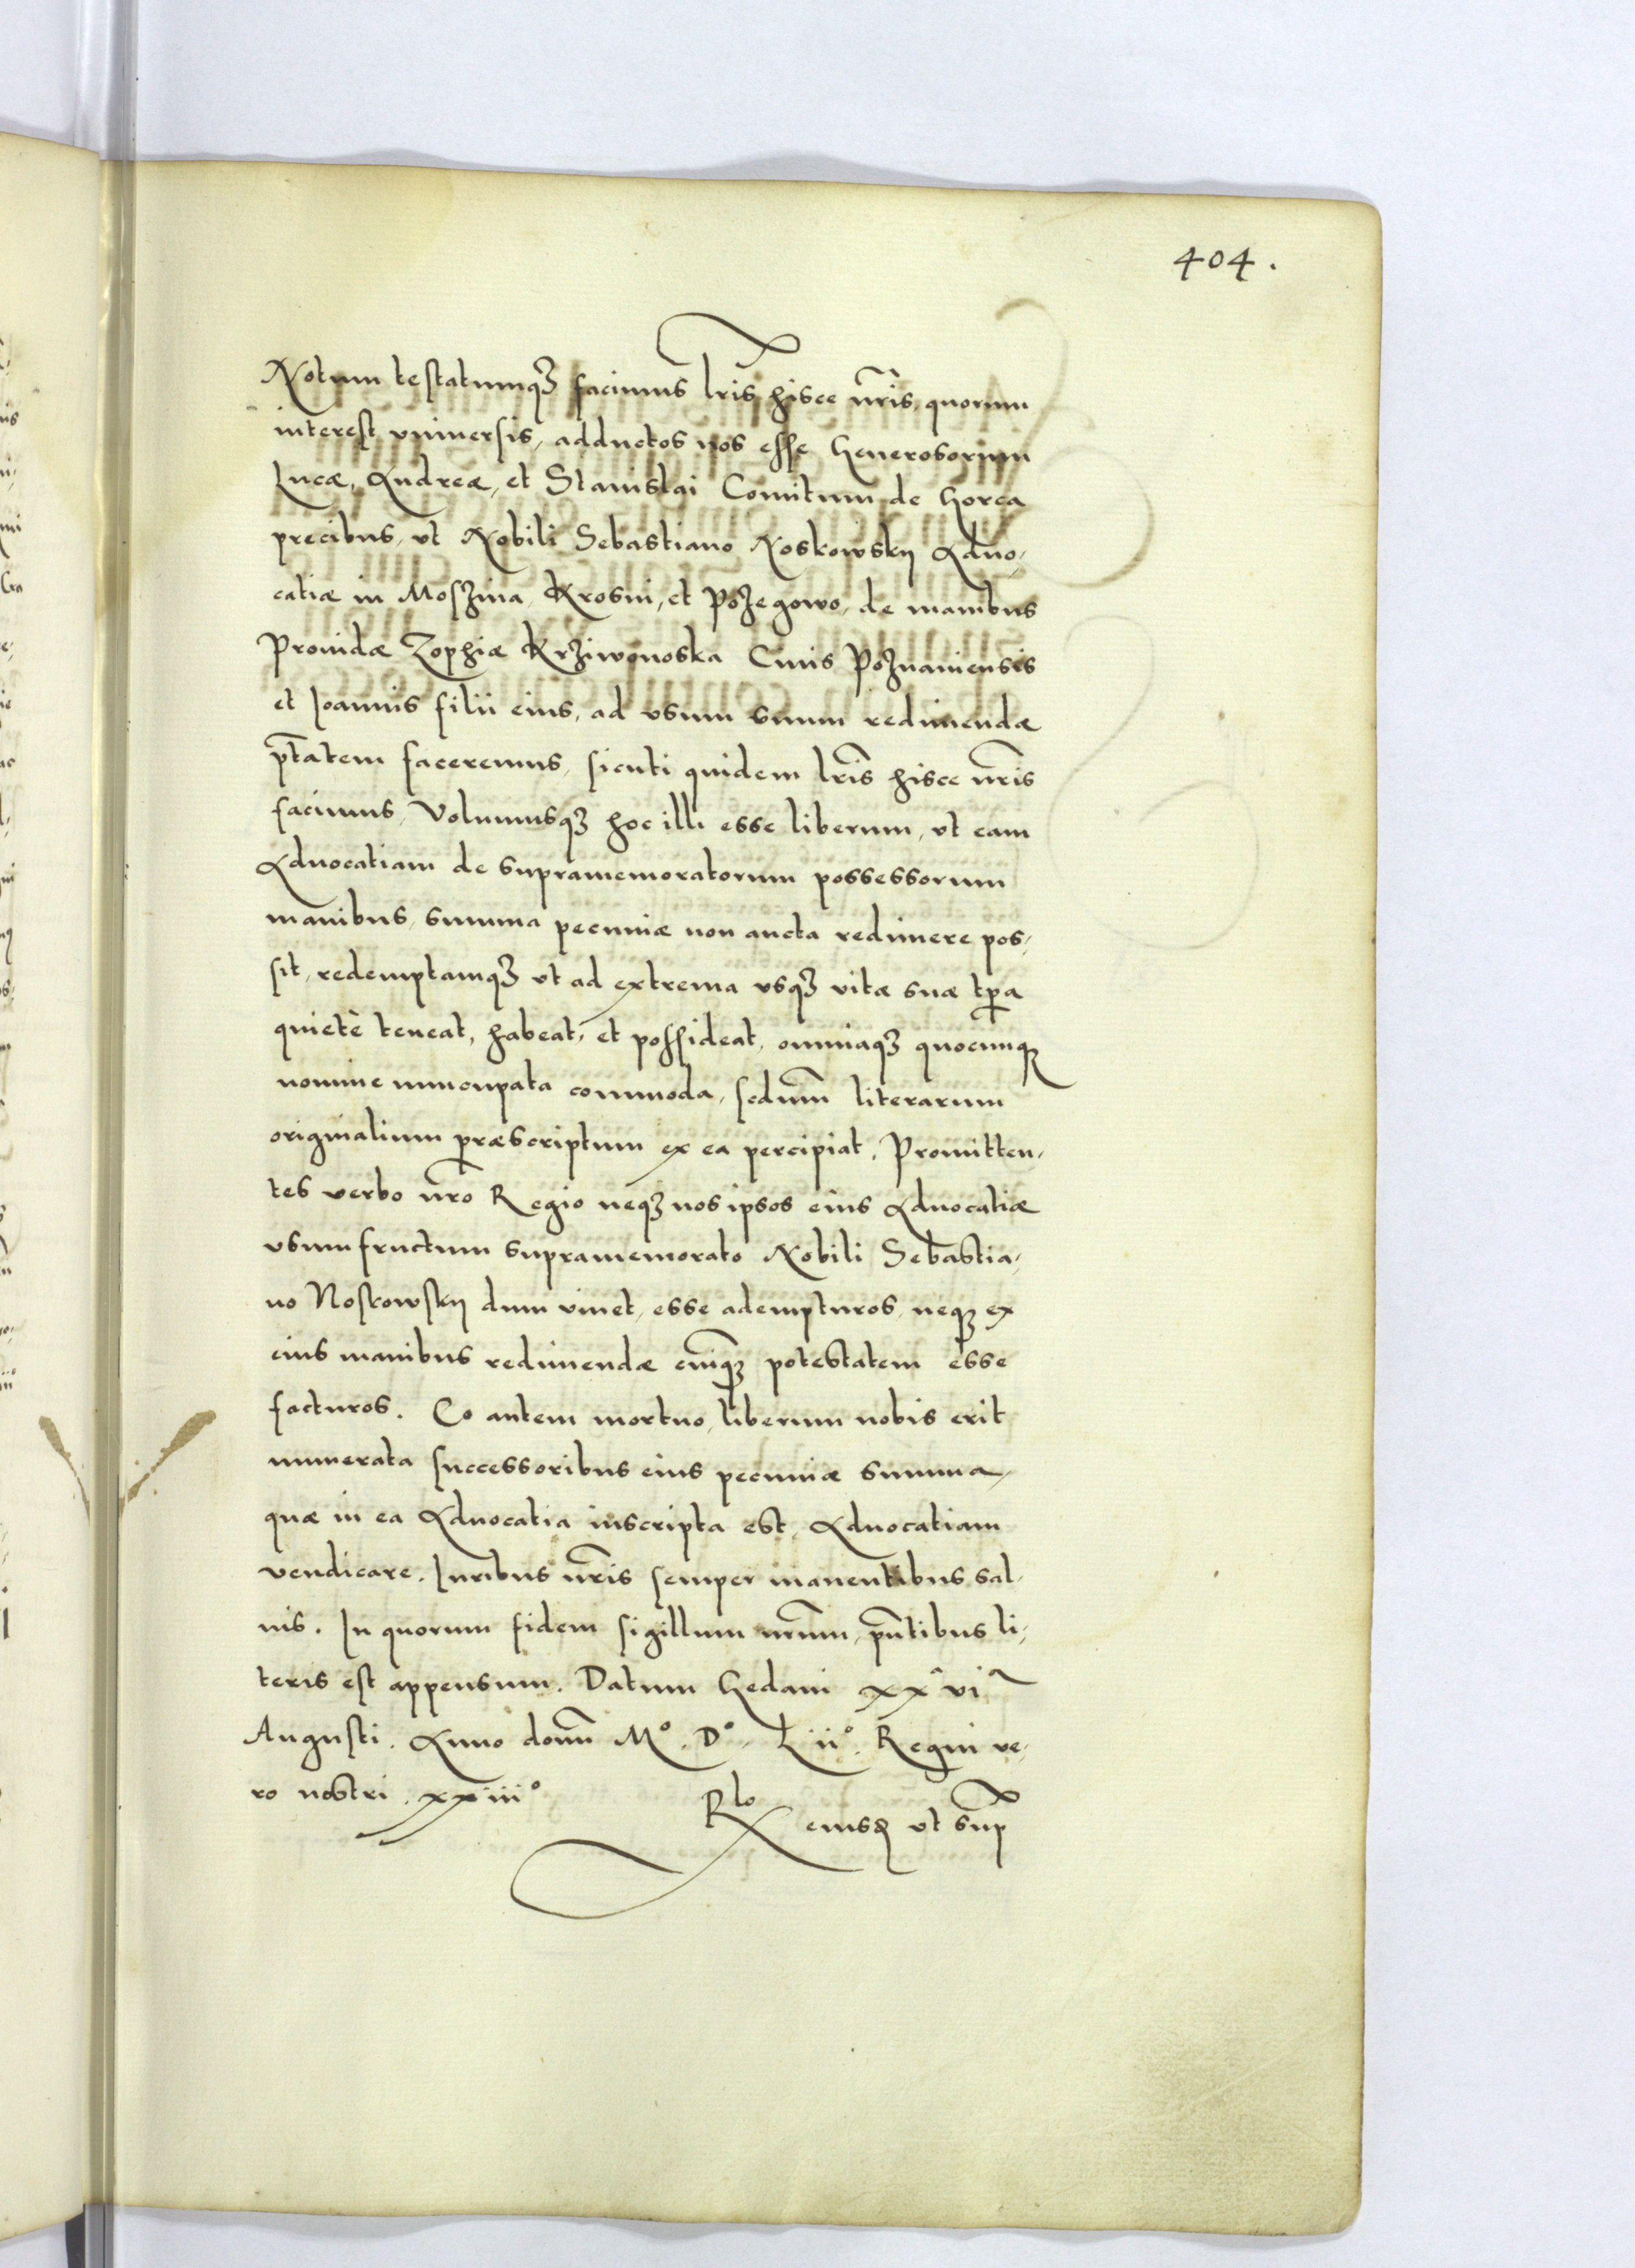 404.
Notum testatumq₃ facimus lr̄is hisce nr̄is, quorum
interest vniuersis, adductos nos esse Generosorum
Lucæ, Andreæ, et Stanislai Comitum de Gorca
precibus, vt Nobili Sebastiano Noskowsky Aduo,
catiæ in Moszina, Krosni, et Pozegowo, de manibus
Prouidæ Zophiæ Krziwonoska Ciuis Poznaniensis
et Ioannis filii eius, ad vsum suum redimendæ
ptātem faceremus, sicuti quidem lr̄is hisce nr̄is
facimus, Volumusq₃ hoc illi esse liberum, vt eam
Aduocatiam de supramemoratorum possessorum
manibus, summa pecuniæ non aucta redimere pos,
sit, redemptamq₃ vt ad extrema vsq₃ vitæ suæ tp̄a
quietè teneat, habeat, et possideat, omniaq₃ quocunq₃
nomine nuncupata commoda, sedum̄ literarum
originalium præscriptum ex ea percipiat. Promitten,
tes verbo nr̄o Regio neq₃ nos ipsos eius Aduocatiæ
vsumfructum supramemorato Nobili Sebastia,
no Noskowsky dum viuet, esse adempturos, neq₃ ex
eius manibus redimendæ cuiq₃ potestatem esse
facturos. Eo autem mortuo, liberum nobis erit
numerata successoribus eius pecuniæ summa,
quæ in ea Aduocatia inscripta est, Aduocatiam
vendicare. Iuribus nr̄is semper manentibus sal,
uis. In quorum fidem sigillum nrūm, pn̄tibus li,
teris est appensum. Datum Gedani xxᵃviᵃ
Augusti. Anno domī M°. D°. Lii°. Regni ve,
ro nostri. xxiii°
Rlo eiusd vt sup